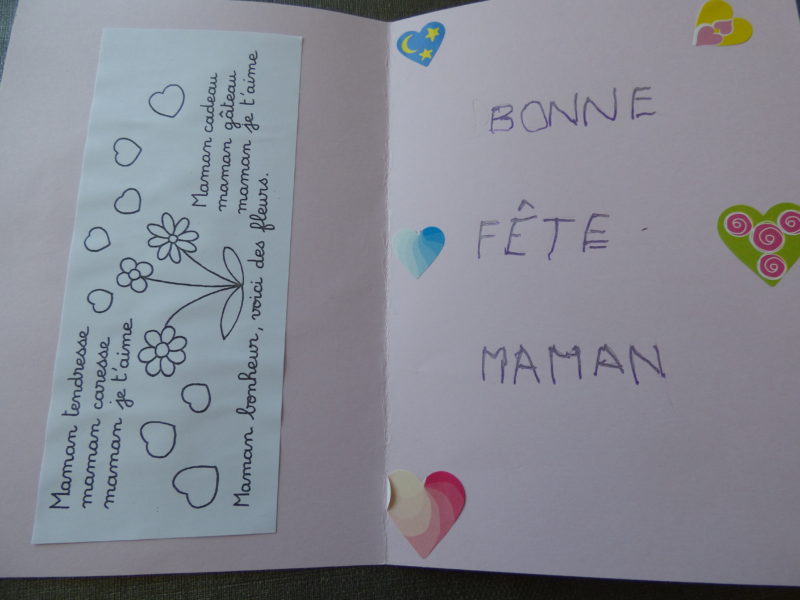 Maman tendresse
maman caresse
maman je t'aime
Maman cadeau
maman gâteau
maman je t'aime
Maman bonheur, voici des fleurs.
BONNE
FÊTE
MAMAN